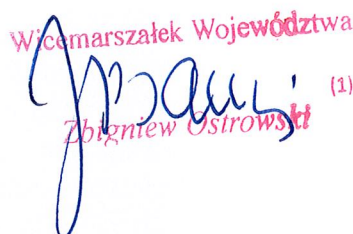 Wicemarszałek Województwa
(1)
Zbigniew Ostrowski